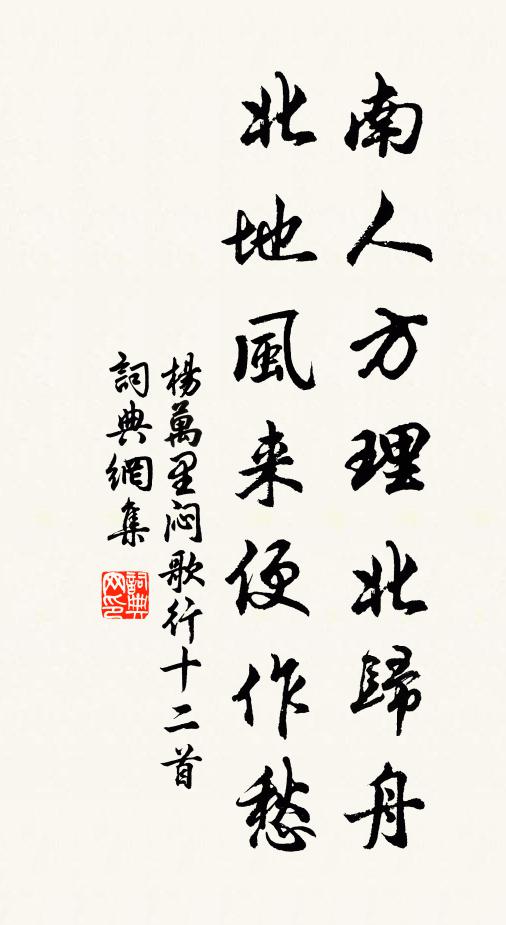 南人方理北歸舟
北地風来便作愁
楊萬里闷歌行十二首
詞典網集
詞典網印